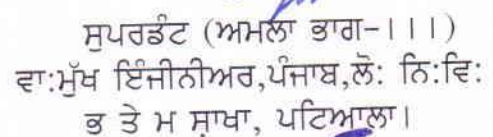 ਸੁਪਰਡੰਟ (ਅਮਲਾ ਭਾਗ-।।।)
ਵਾ:ਮੁੱਖ ਇੰਜੀਨੀਅਰ,ਪੰਜਾਬ,ਲੋ: ਨਿ:ਵਿ:
ਭ ਤੇ ਮ ਸ਼ਾਖਾ, ਪਟਿਆਲਾ।